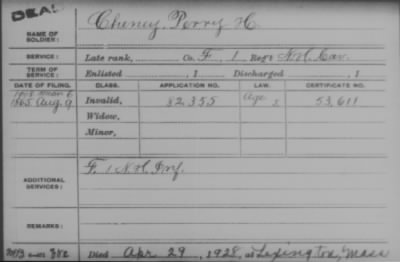 DEAD
NAME OF SOLDIER: Cheney, Perry H.
SERVICE: Late rank, Co. F, 1 Reg't N.H. Cav.
TERM OF SERVICE: Enlisted , 1 Discharged , 1
DATE OF FILING. CLASS. APPLICATION NO. LAW. CERTIFICATE NO.
1865 Aug. 9 Invalid, 82,355 Age 53,611
Widow,
Minor,
ADDITIONAL SERVICES: F. 1 N.H. Inf.
REMARKS:
Died Apr 29, 1928, at Lexington, Mass